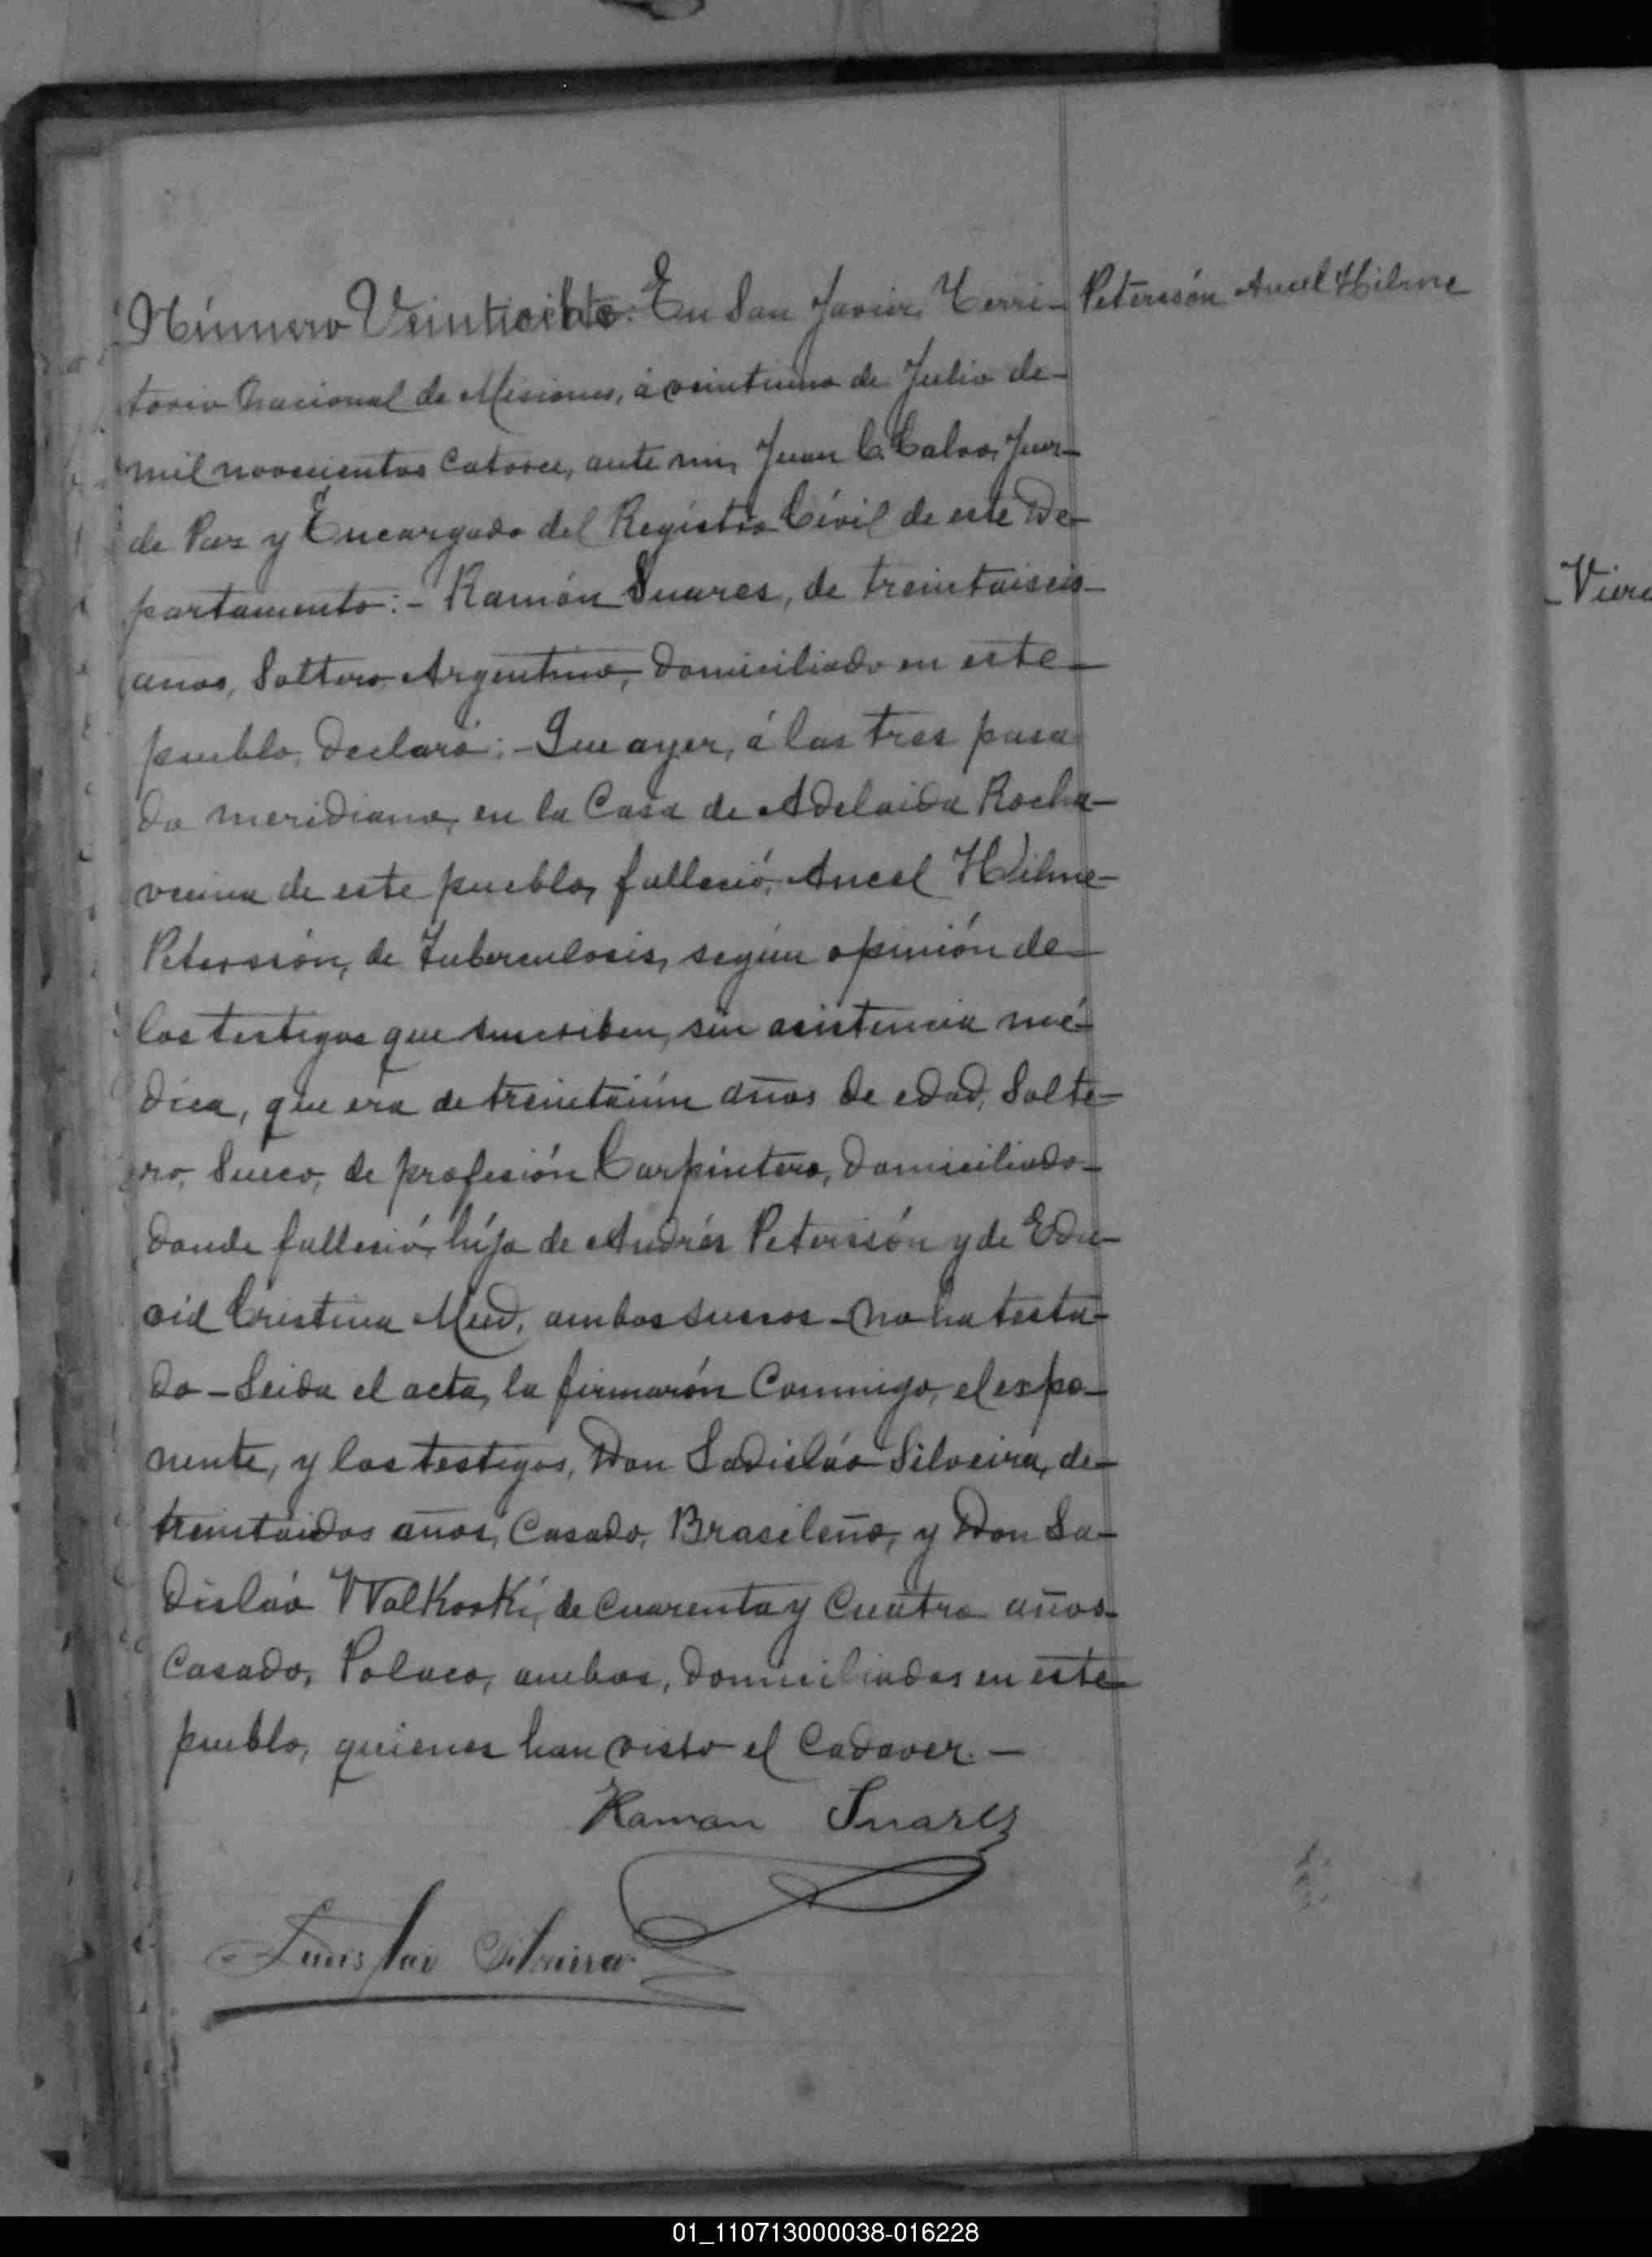 Número Veintiocho. En San Javier, Terri-
Peterssón Ancel Hilme
torio Nacional de Misiones, á veintiuno de Julio de-
mil novecientos catorce, ante mi, Juan C. Calvo, Juez-
de Paz y Encargado del Registro Civil de este De-
partamento:- Ramón Suares, de treintaiseis-
años, Soltero Argentino, domiciliado en este-
pueblo, declaró:- Que ayer, á las tres pasa
do meridiano, en la Casa de Adelaida Rocha-
vecina de este pueblo, falleció, Ancel Hilme-
Peterssón, de Tuberculosis, según opinión de-
los testigos que suscriben, sin asistencia mé-
dica, que era de treintaiún años de edad, Solte-
ro, Sueco, de profesión Carpintero, domiciliado-
donde falleció, hijo de Andrés Peterssón y de Edu-
vid Cristina Med, ambos suecos - no ha testa-
do - Leida el acta, la firmarón Conmigo, el expo-
nente, y los testigos, Don Ladisláo Silveira, de-
treintaidos años, Casado, Brasileño, y Don La-
disláo Walkoski, de Cuarenta y Cuatro años-
Casado, Polaco, ambos, domiciliados en este-
pueblo, quienes han visto el Cadaver.-
Ramon Suarez
Ladislao Silveira
Viera
01_110713000038-016228